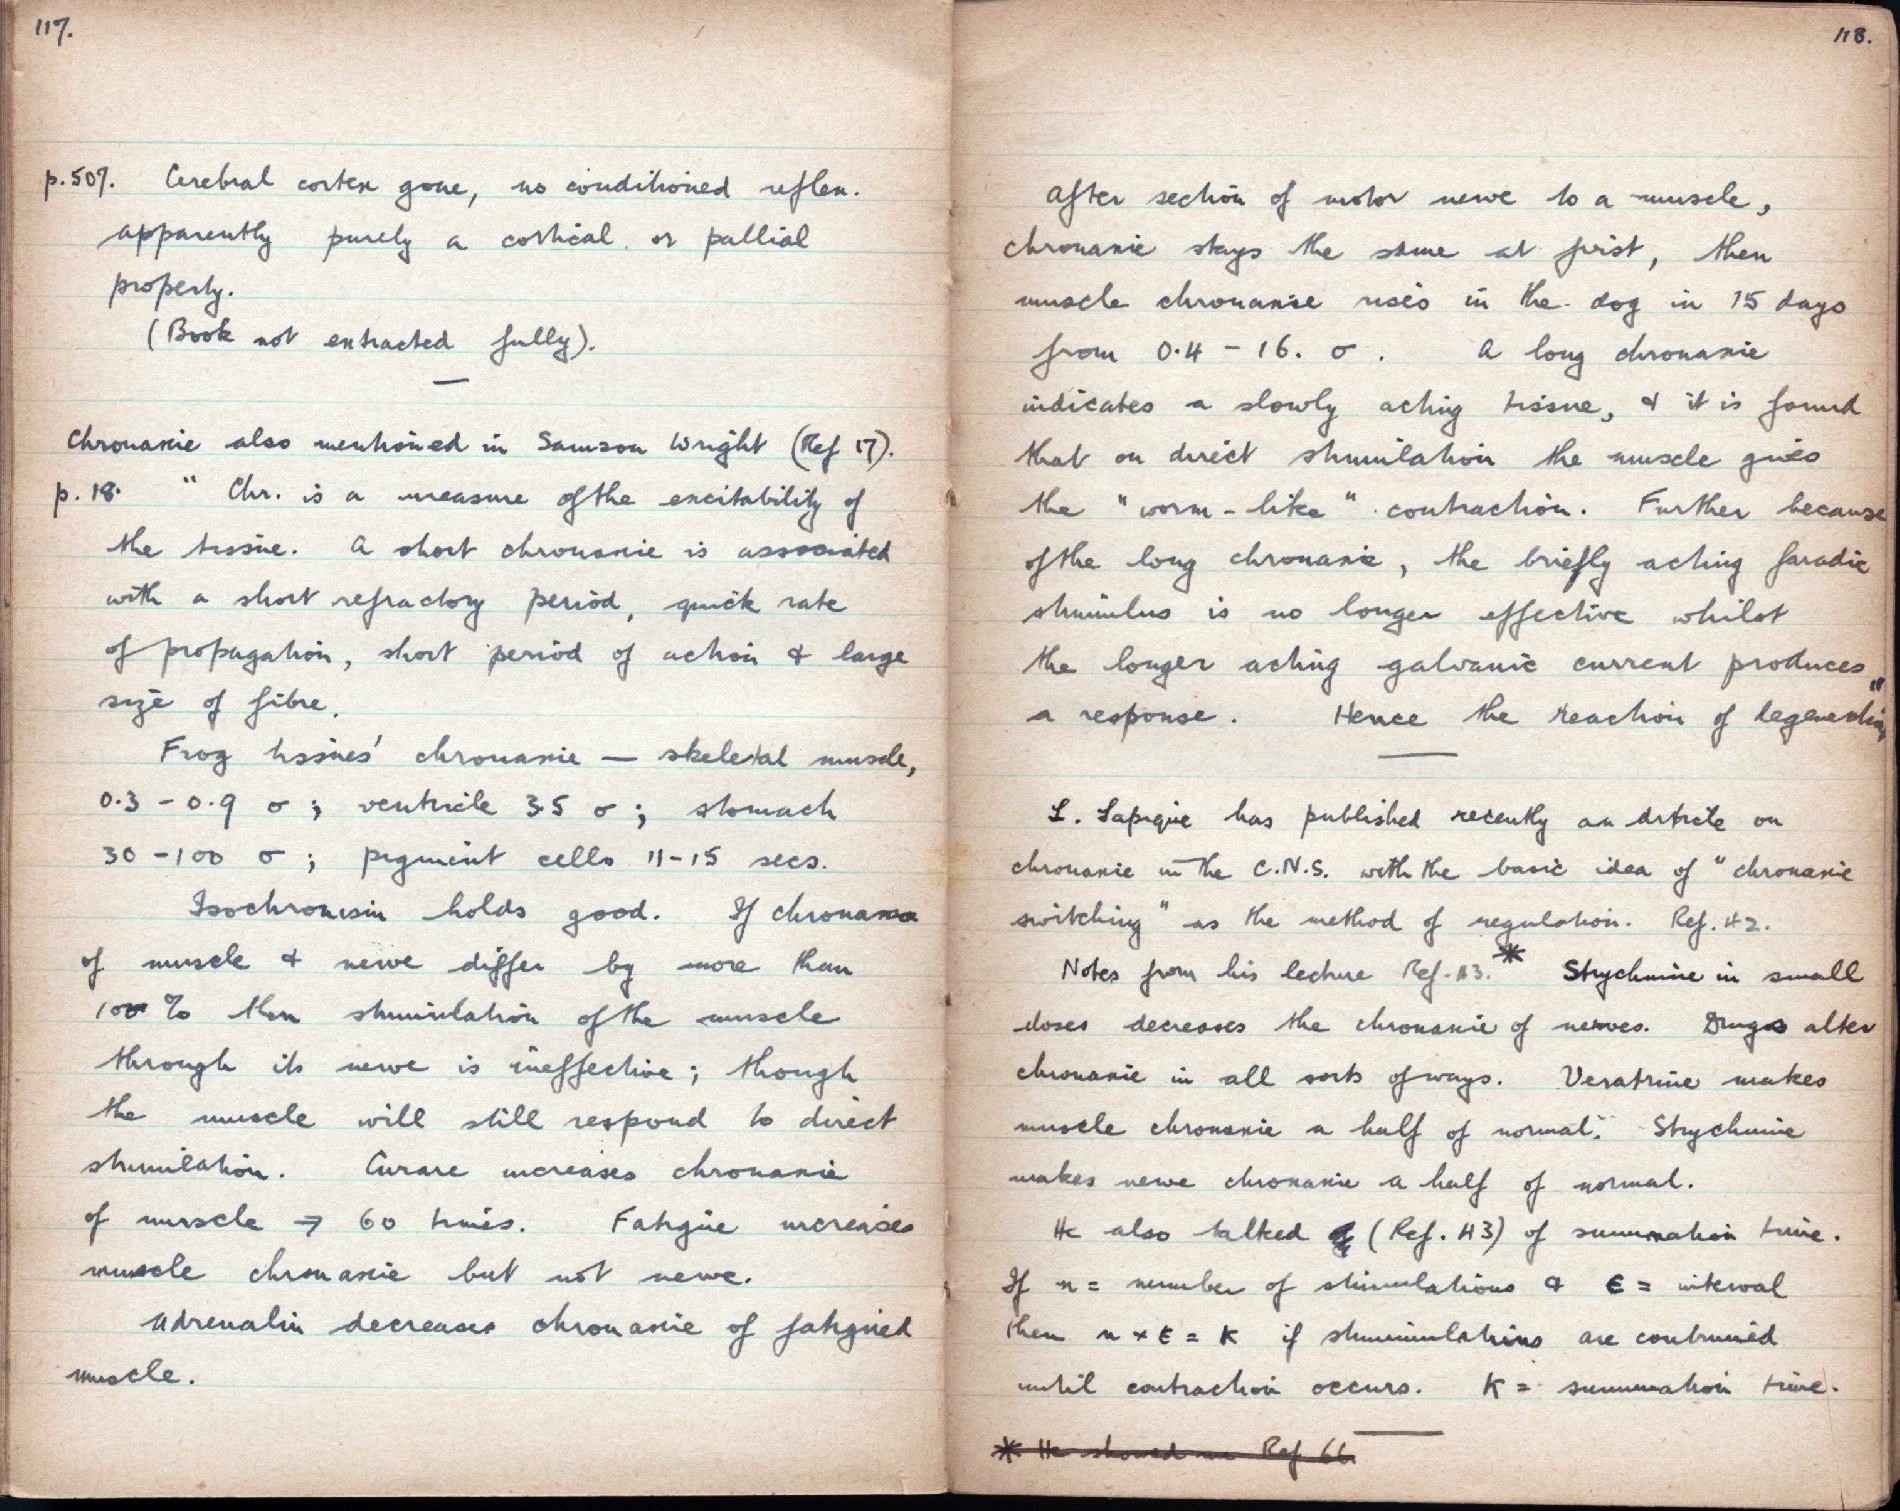 117.
p.507. Cerebral cortex gone, no conditioned reflex.
apparently purely a cortical or pallial
property.
(Book not extracted fully).
Chronaxie also mentioned in Samson Wright (Ref 17).
p.18. "Chr. is a measure of the excitability of
the tissue. A short chronaxie is associated
with a short refractory period, quick rate
of propagation, short period of action & large
size of fibre.
Frog tissues' chronaxie — skeletal muscle,
0.3 - 0.9 σ ; ventricle 3.5 σ ; stomach
30 - 100 σ ; pigment cells 11-15 secs.
Isochronism holds good. If chronaxie
of muscle & nerve differ by more than
100 % then stimulation of the muscle
through its nerve is ineffective; though
the muscle will still respond to direct
stimulation. Curare increases chronaxie
of muscle → 60 times. Fatigue increases
muscle chronaxie but not nerve.
Adrenalin decreases chronaxie of fatigued
muscle.
118.
After section of motor nerve to a muscle,
chronaxie stays the same at first, then
muscle chronaxie rises in the dog in 15 days
from 0.4 - 16. σ . A long chronaxie
indicates a slowly acting tissue, & it is found
that on direct stimulation the muscle gives
the "worm-like" contraction. Further because
of the long chronaxie, the briefly acting faradic
stimulus is no longer effective whilst
the longer acting galvanic current produces
a response. Hence the reaction of degeneration"
L. Lapique has published recently an article on
chronaxie in the C.N.S. with the basic idea of "chronaxie
switching" as the method of regulation. Ref. 42.
Notes from his lecture Ref. 43.* Strychnine in small
doses decreases the chronaxie of nerves. Drugs alter
chronaxie in all sorts of ways. Veratrine makes
muscle chronaxie a half of normal. Strychnine
makes nerve chronaxie a half of normal.
He also talked (Ref. 43) of summation time.
If n = number of stimulations & ε = interval
then n × ε = K if stimulations are continued
until contraction occurs. K = summation time.
* He showed me Ref 66.